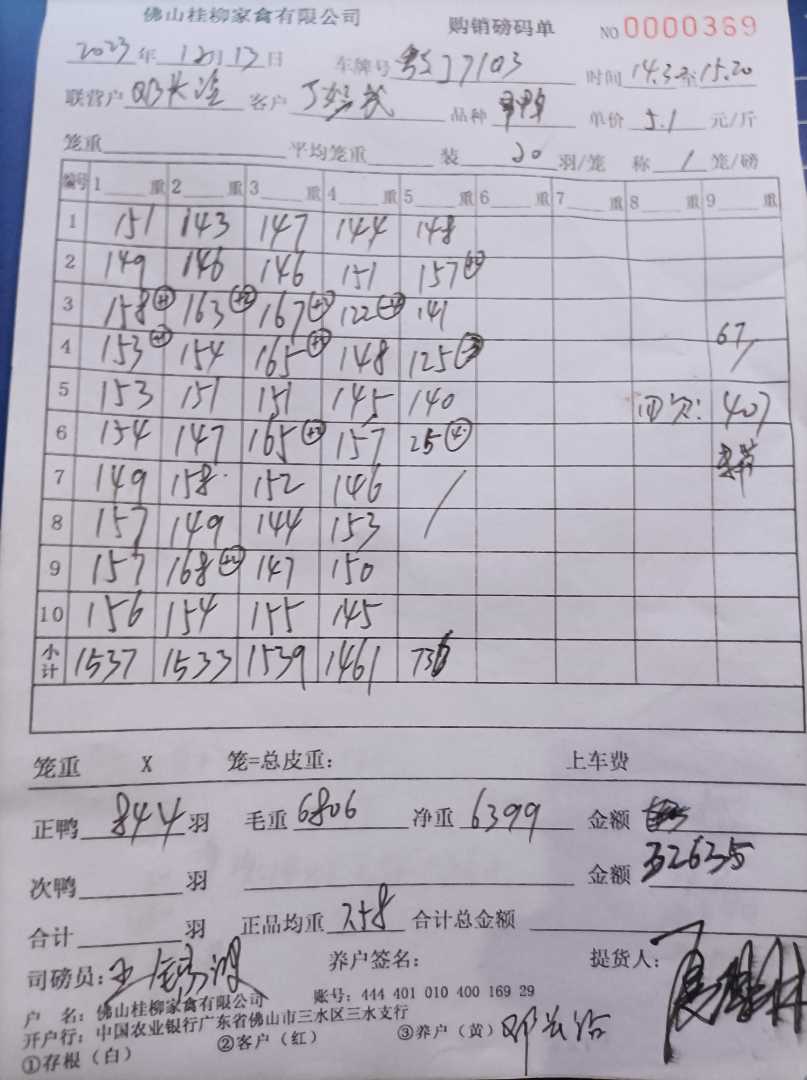 佛山桂柳家禽有限公司 购销磅码单 NO 0000369
2023年12月13日 车牌号 时间14.3至15.20
联营户 客户 品种 单价5.1元/斤
笼重 平均笼重 装20羽/笼 称1笼/磅
编号 1 重 2 重 3 重 4 重 5 重 6 重 7 重 8 重 9 重
1 151 143 147 144 148
2 149 146 146 151 157
3 158 163 167 122 141
67/
4 153 154 165 148 125
5 153 151 151 145 140
407
6 154 147 165 157 25
7 149 158 152 146 /
8 157 149 144 153
9 157 168 147 150
10 156 154 155 145
小计 1537 1533 1539 1461 736
笼重 X 笼=总皮重: 上车费
正鸭844羽 毛重6806 净重6399 金额
次鸭 羽 金额32635
合计 羽 正品均重7.58 合计总金额
司磅员: 养户签名: 提货人:
户 名: 佛山桂柳家禽有限公司 账号: 444 401 010 400 169 29
开户行: 中国农业银行广东省佛山市三水区三水支行
①存根(白) ②客户(红) ③养户(黄)